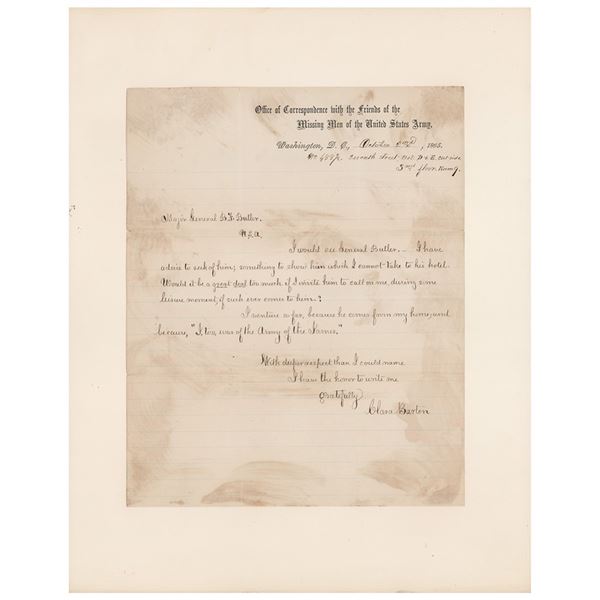 Office of Correspondence with the Friends of the
Missing Men of the United States Army,
Washington, D. C., October 2nd, 1865.
No. 488½ Seventh Street bet. D & E. out side
3rd floor. Room 9.
Major General B. F. Butler.
U.S.A.
I would see General Butler. — I have
advice to seek of him; something to show him which I cannot take to his hotel.
Would it be a great deal too much if I invite him to call on me, during some
leisure moment, if such ever comes to him?
I venture so far, because he comes from my home, and
because, "I, too, was of the Army of the James."
With deeper respect than I could name
I have the honor to write me
gratefully
Clara Barton